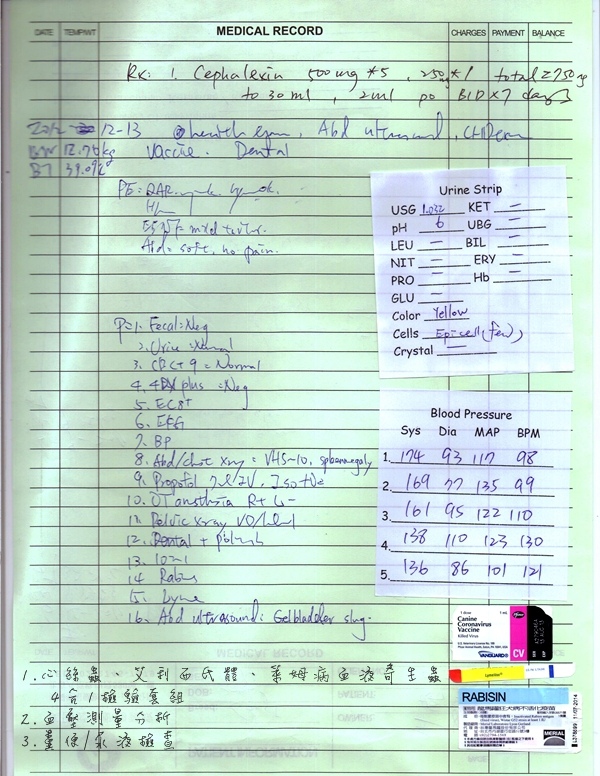 DATE TEMP/WT MEDICAL RECORD CHARGES PAYMENT BALANCE
Rx: 1. Cephalexin 500mg *5 , 250mg*1 total 2750mg
to 30ml , 2ml po BID x 7 days
2012 12-13 health exam, Abd ultrasound,
BW 12.76kg vaccine. Dental
BT
PE: BAR.
EENT= mild tartar.
Abd= soft, no pain.
Urine Strip
USG 1.032 KET —
pH 6 UBG —
LEU — BIL —
NIT — ERY —
PRO — Hb —
GLU —
Color Yellow
Cells Epi cell (few)
Crystal —
P=1. Fecal=Neg
2. Urine =Normal
3. CBC+9 = Normal
4. 4DX plus =Neg
5. EC8+
6. EKG
7. BP
8. Abd/chest xray = VHS~10,
9. Propofol
10.
11. Pelvic xray
12. Dental + polish
13. 10 in 1
14. Rabies
15. Lyme
16. Abd ultrasound: Gelbladder
Blood Pressure
Sys Dia MAP BPM
1. 174 93 117 98
2. 169 77 135 99
3. 161 95 122 110
4. 138 110 123 130
5. 136 86 101 121
1 dose 1 mL
Canine
Coronavirus
Vaccine
Killed Virus
VANGUARD
CV
Pfizer
RABISIN
MERIAL
1.心絲蟲、艾利西氏體、萊姆病血液寄生蟲
4合1檢驗套組
2.血壓測量分析
3.糞便/尿液檢查